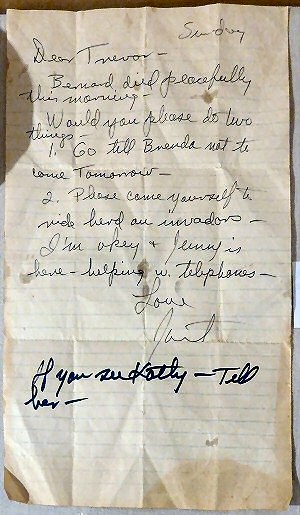 Sunday
Dear Trevor —
Bernard died peacefully
this morning —
Would you please do two
things —
1. Go tell Brenda not to
come Tomorrow —
2. Please come yourself to
ride herd on invadors —
I'm okey + Jenny is
here — helping w. telephones —
Love
If you see Kathy — Tell
her —